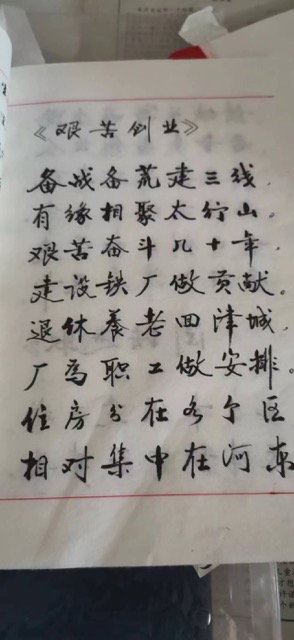 《艰苦创业》
备战备荒建三线，
有缘相聚太行山。
艰苦奋斗几十年，
建设铁厂做贡献。
退休养老回津城，
厂为职工做安排。
住房分在各个区
相对集中在河东